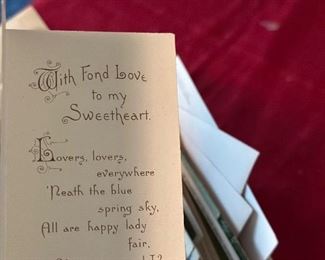 With Fond Love
to my
Sweetheart.
Lovers, lovers,
everywhere
'Neath the blue
spring sky,
All are happy lady
fair,
I?